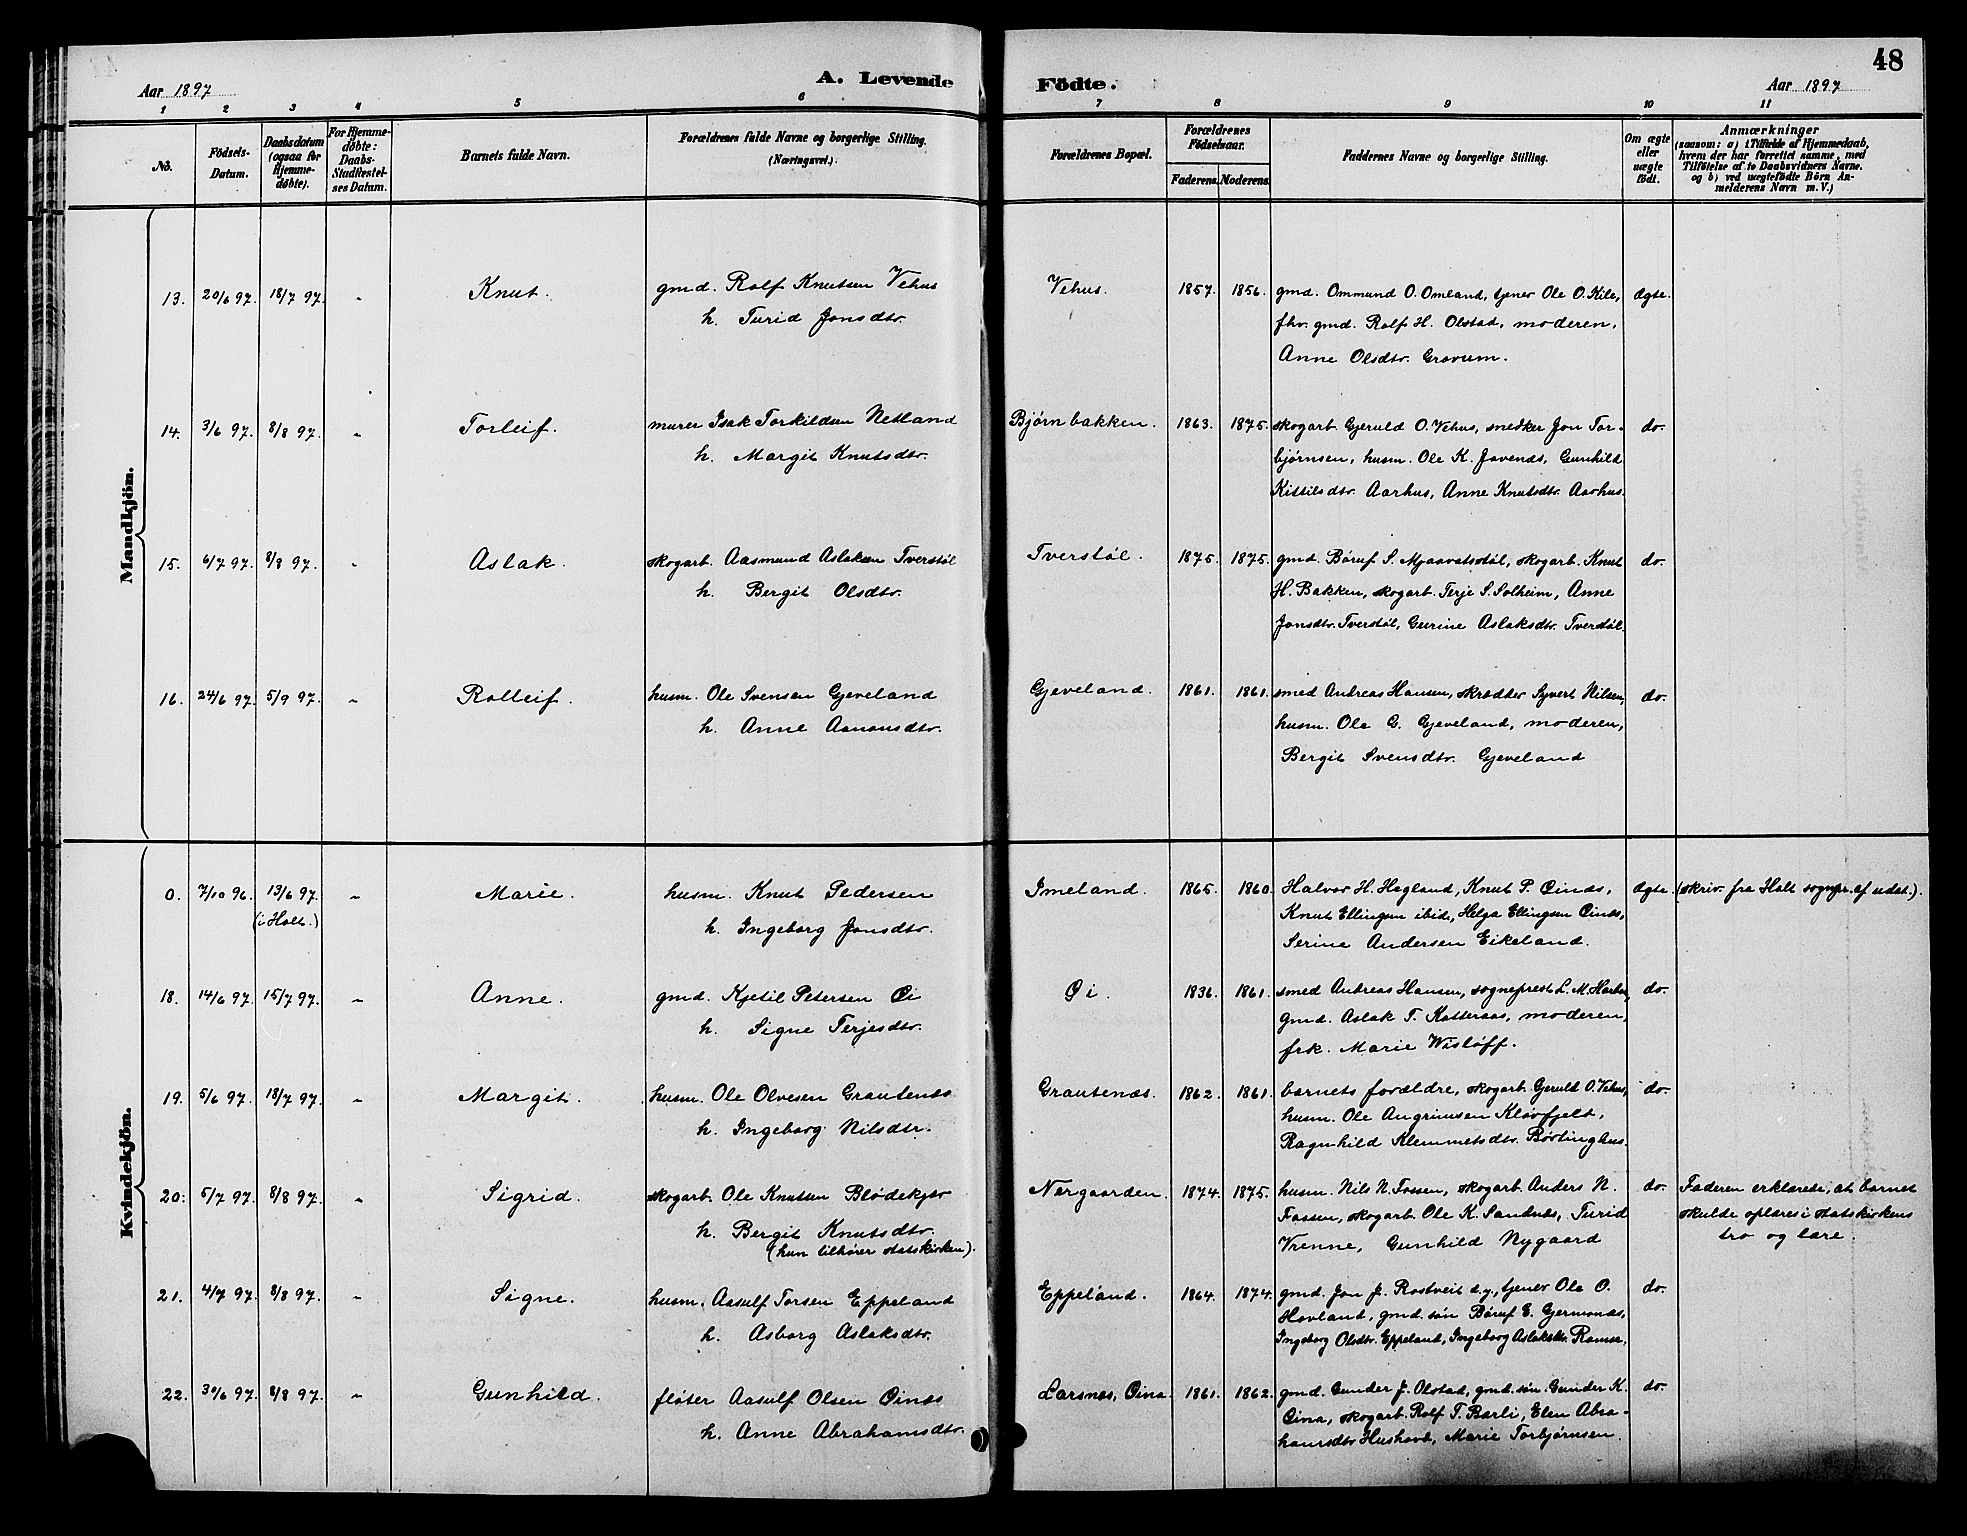 48
Aar 1897
A. Levende Födte.
Aar 1897
1 2 3 4 5 6 7 8 9 10 11
No.
Fødsels-Datum.
Daabsdatum (ogsaa for Hjemmedøbte).
For Hjemmedøbte: Daabs-Stadfæstelses Datum.
Barnets fulde Navn.
Forældrenes fulde Navne og borgerlige Stilling.
(Næringsvei.)
Forældrenes Bopæl.
Forældrenes Födselsaar.
Faderens. Moderens.
Faddernes Navne og borgerlige Stilling.
Om ægte eller uægte födt.
Anmærkninger
(saasom: a) i Tilfælde af Hjemmedaab,
hvem der har forrettet samme, med
Tilföielse af to Daabsvidners Navne.
og b) ved uægtefödte Börn An-
melderens Navn m. V.)
Mandkjön.
13. 20/6 97. 18/7 97. " Knut. gmd. Rolf Knutsen Vehus Vehus. 1857. 1856. gmd. Ommund O. Omland, tjener Ole O. Kile, ægte.
h. Turid Jonsdtr. fhv. gmd. Rolf H. Olstad, moderen,
Anne Olsdtr. Gravum.
14. 3/6 97. 8/8 97. " Torleif. murer Isak Torkildsen Netland Bjørnbakken. 1863. 1875. skogarb. Gjeruld O. Vehus, snedker Jon Tor- do.
h. Margit Knutsdtr. bjørnsen, husm. Ole K. Jovends, Gunhild
Kittilsdtr. Aarhus, Anne Knutsdtr. Aarhus.
15. 6/7 97. 8/8 97. " Aslak. skogarb. Aasmund Aslaksen Tverstøl Tverstøl. 1875. 1875. gmd. Børuf S. Mjaavatsstøl, skogarb. Knut do.
h. Bergit Olsdtr. H. Bakken, skogarb. Terje S. Solheim, Anne
Jonsdtr. Tverstøl, Gurine Aslaksdtr. Tverstøl.
16. 24/6 97. 5/9 97. " Rolleif. husm. Ole Svensen Gjeveland Gjeveland. 1861. 1861. smed Andreas Hansen, skrædder Syvert Nilsen, do.
h. Anne Aanonsdtr. husm. Ole G. Gjeveland, moderen,
Bergit Svensdtr. Gjeveland
Kvindekjön.
0. 7/10 96. 13/6 97. " Marie. husm. Knut Pedersen Imeland. 1865. 1860. Halvor H. Hegland, Knut P. Øinæs, ægte. (skriv. fra Holt sognepr. af udat.).
(i Holt.) h. Ingeborg Jonsdtr. Knut Ellingsen ibid, Helga Ellingsen Øinæs,
Serine Andersen Eikeland.
18. 14/6 97. 15/7 97. " Anne. gmd. Kjetil Petersen Øi Øi. 1836. 1861. smed Andreas Hansen, sogneprest L. M. do.
h. Signe Terjesdtr. gmd. Aslak T. Katteraas, moderen,
frk. Marie Wisløff.
19. 5/6 97. 18/7 97. " Margit. husm. Ole Olvesen Grautenæs Grautenæs. 1862. 1861. barnets forældre, skogarb. Gjeruld O. Vehus, do.
h. Ingeborg Nilsdtr. husm. Ole Angrimsen Kløvfjelt,
Ragnhild Klemmetsdtr. Børtinghus.
20. 5/7 97. 8/8 97. " Sigrid. skogarb. Ole Knutsen Nørgaarden. 1874. 1875. husm. Nils N. Fossen, skogarb. Anders N. do. Faderen erklærede, at barnet
h. Bergit Knutsdtr. Fossen, skogarb. Ole K. Sandnæs, Turid skulde oplæres i statskirkens
(hun tilhører statskirken). Vrenne, Gunhild Nygaard tro og lære.
21. 4/7 97. 8/8 97. " Signe. husm. Aasulf Torsen Eppeland Eppeland. 1864. 1874. gmd. Jon J. Rostveit d.y., tjener Ole O. do.
h. Asborg Aslaksdtr. Hovland, gmd. søn Børuf E. Gjermonæs,
Ingeborg Olsdtr. Eppeland, Ingeborg Aslaksdtr. Ramse.
22. 30/6 97. 8/8 97. " Gunhild. fløter Aasulf Olsen Øinæs Larsnes, Øina. 1861. 1862. gmd. Gunder J. Olstad, gmd. søn Gunder K. do.
h. Anne Abrahamsdtr. Øina, skogarb. Rolf T. Barli, Elen Abra-
hamsdtr. Hushovt, Marie Torbjørnsen.